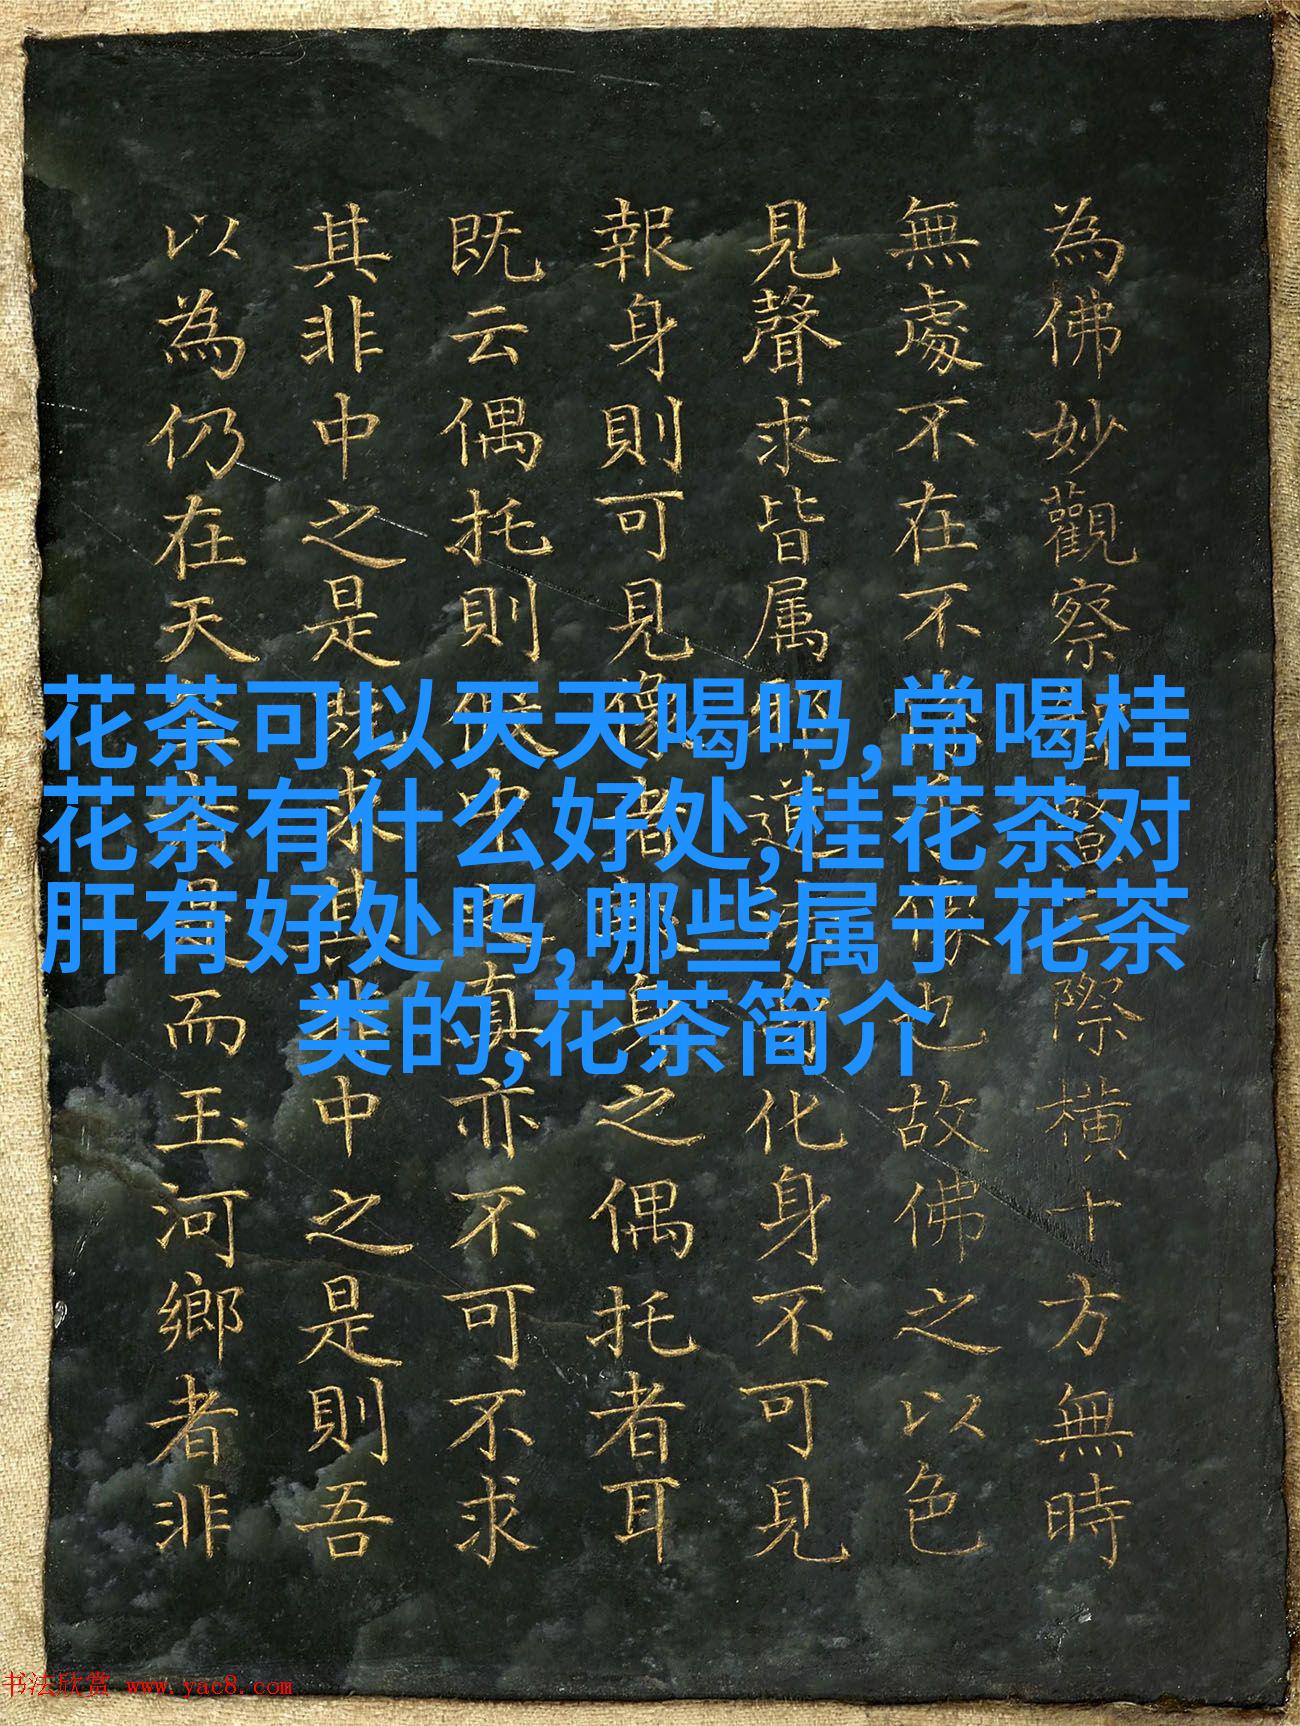 為佛妙觀察際橫十方無時
無處不在不也故佛之以色
見聲求皆属道化身不可見
報身則可見像者身之偶托者耳
既云偶托則假中之真亦不可不求
其非中之是既求其非中之是則吾
以為仍在天而玉河鄉者非
花茶可以天天喝吗,常喝桂
花茶有什么好处,桂花茶对
肝有好处吗,哪些属于花茶
类的,花茶简介
书法欣赏 www.yac8.com